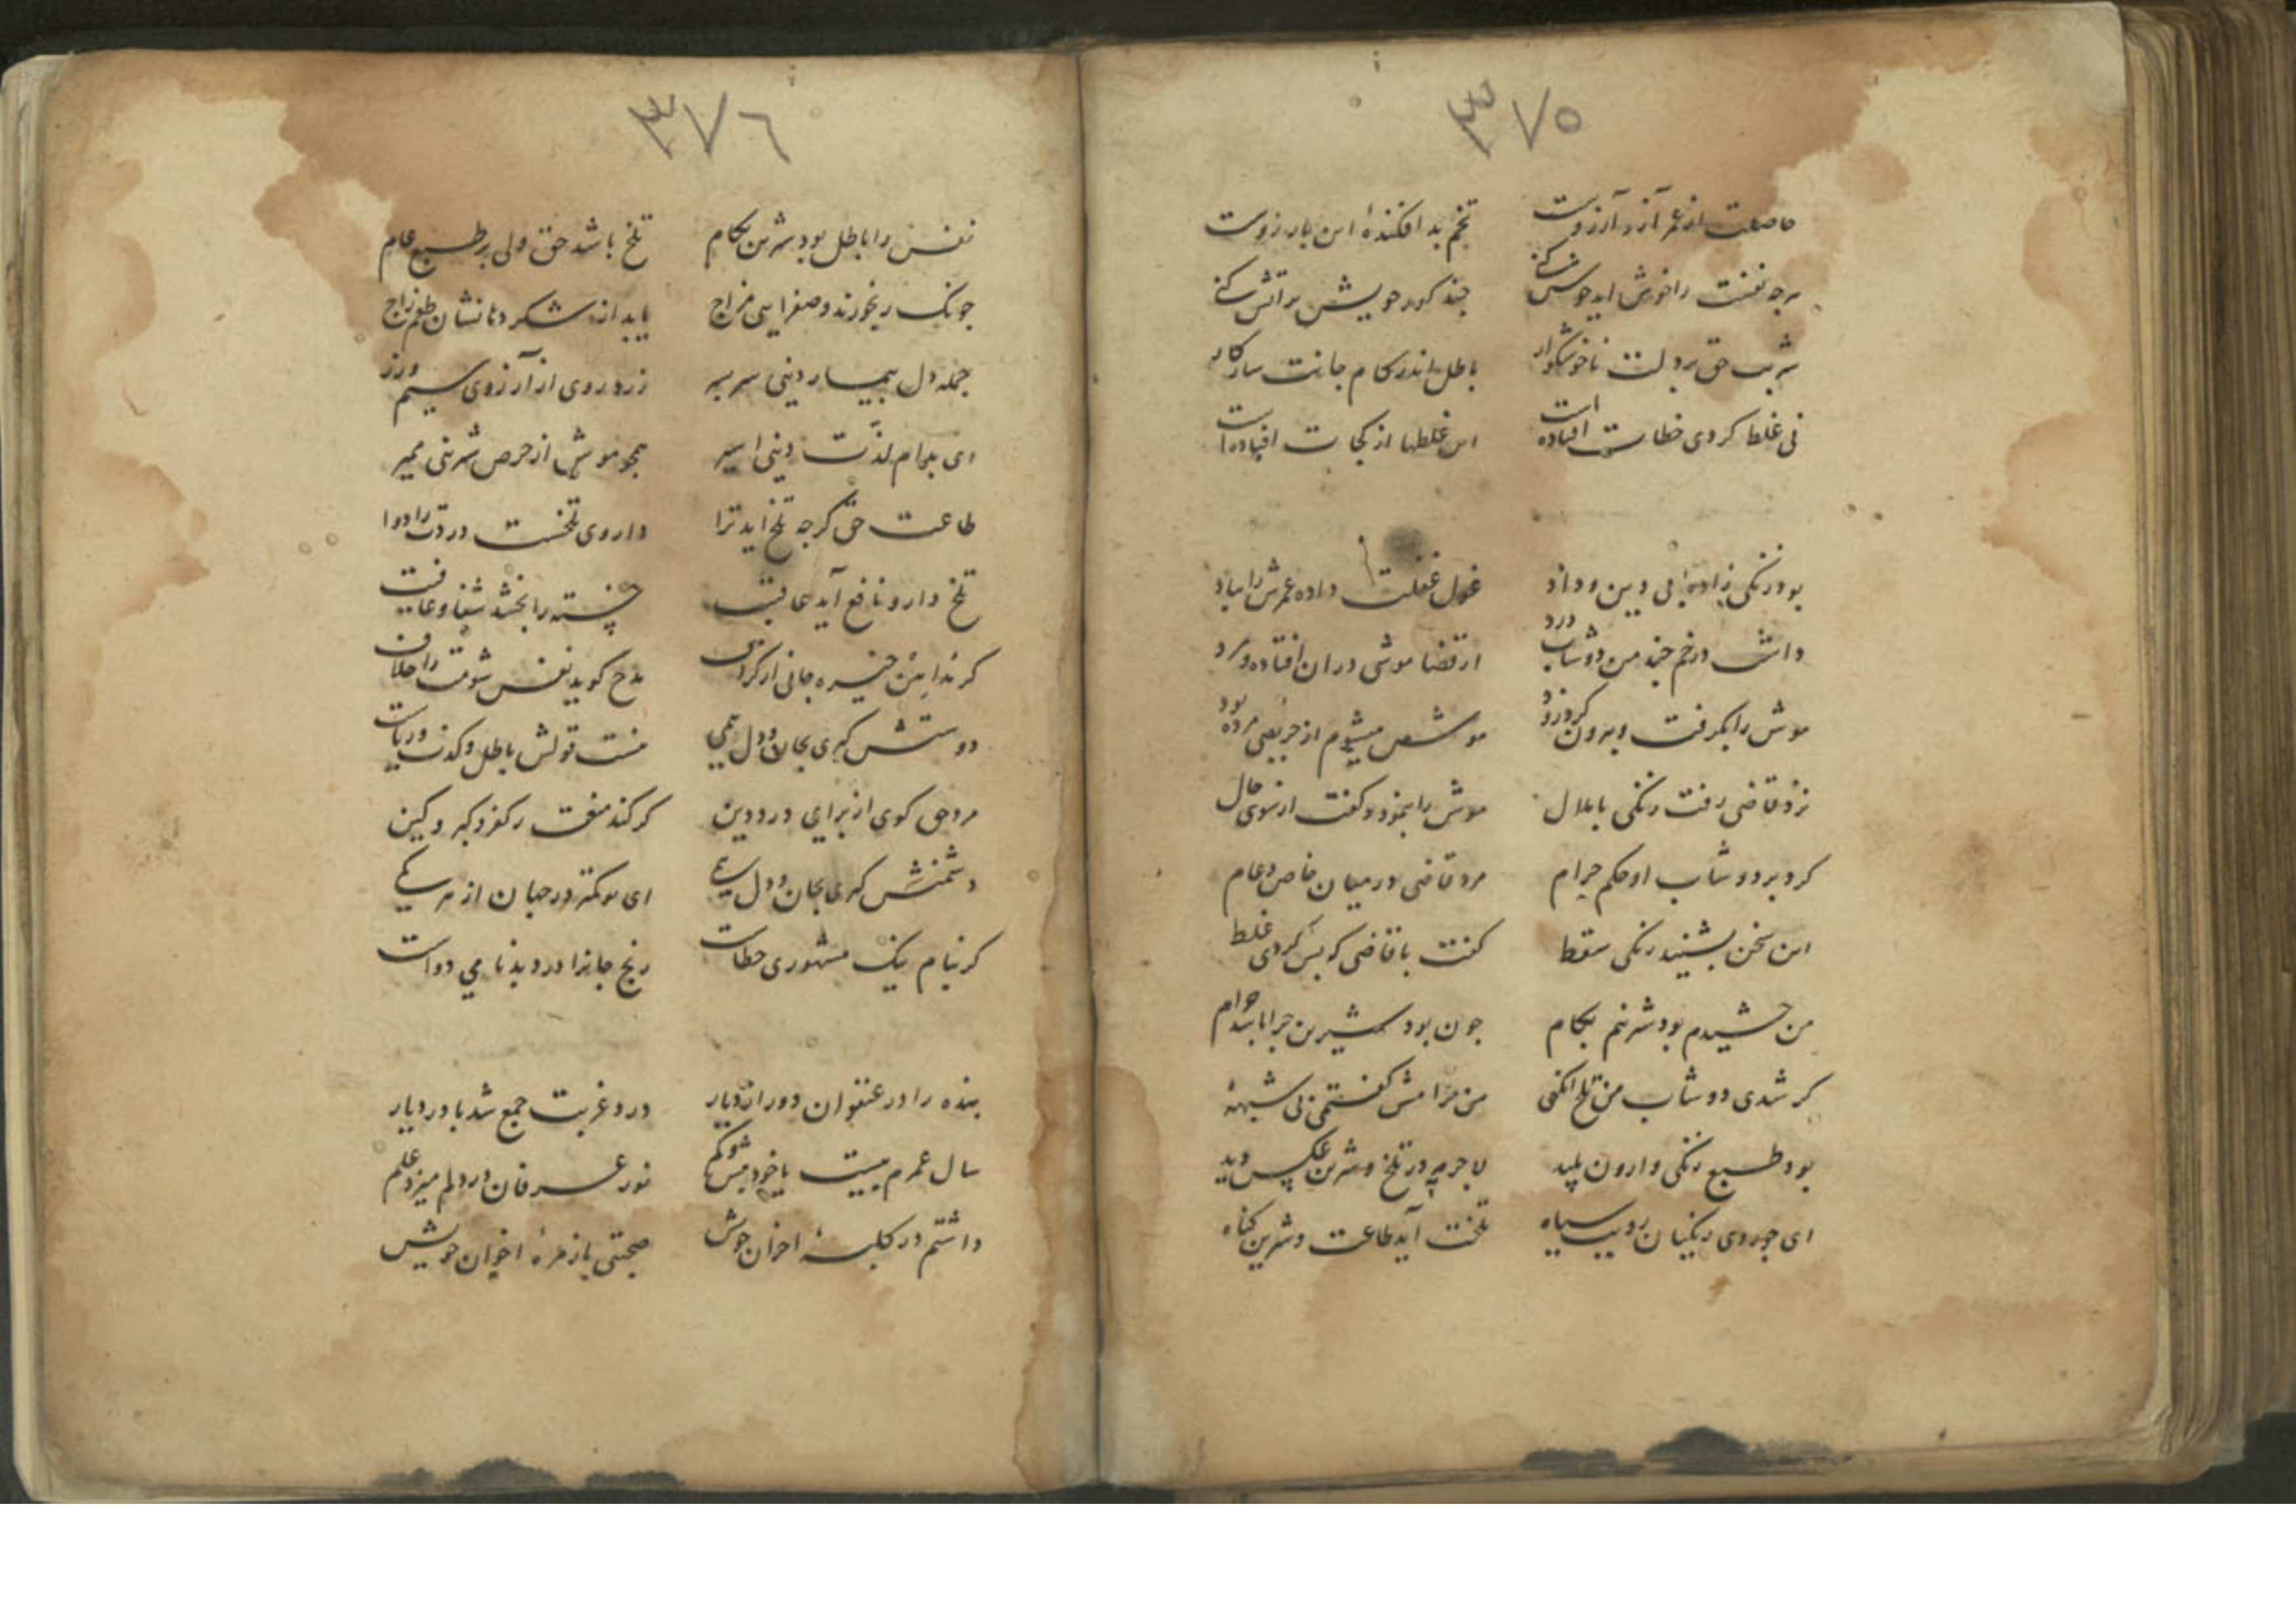 ٣٧٥
حاصلت از عمر آز و آرزوست تخم بد افکندهٔ این بار زوست
هرچه نفست را خوش اید خوش کنی چند کور خویش پر اتش کنی
شربت حق بر دلت ناخوشکوار باطل اندر کام جانت سازکار
نی غلط کردی خطات افتاده است این غلطها از کجات افتاده است
بود زنکی زادهٔ بی دین و داد غول غفلت داده عمرش را بباد
داشت در خم چند من دوشاب درد از قضا موشی در ان افتاد و مرد
موش را بکرفت و بیرون کرد زود موش میشوم از حریصی مرده بود
نزد قاضی رفت زنکی با ملال موش را بنمود و کفت از سوی حال
کرد بر دوشاب او حکم حرام مرد قاضی در میان خاص و عام
این سخن بشنید زنکی سقط کفت با قاضی که بس کردی غلط
من چشیدم بود شیرینم بکام چون بود شیرین چرا باشد حرام
کر شدی دوشاب من تلخ انکهی من حرامش کفتمی بی شبههٔ
بود طبع زنکی وارون پلید لاجرم در تلخ و شیرین عکس دید
ای چو روی زنکیان رویت سیاه تلخت آید طاعت و شیرین کناه
٣٧٦
نفس را باطل بود شیرین بکام تلخ باشد حق ولی بر طبع عام
چونک رنجورند و صفرایی مزاج یابد از شکر دهانشان طعم زاج
جمله دل بیمار دنیی سر بسر زرد روی از آرزوی سیم وزر
ای بدام لذّت دنیی اسیر همچو موش از حرص شیرینی ممیر
طاعت حق کرچه تلخ اید ترا داروی تلخست دردت را دوا
تلخ دارو نافع آید عاقبت خسته را بخشد شفا و عافیت
کر ندا بیش خیره جانی از کزاف مدح کوید نفس شومت را خلاف
دوستش کیری بجان و دل همی هست قولش باطل و کذب و ریاست
مرد حق کوی از برای درد دین کر کند منعت ز کفر و کبر و کین
دشمنش کیری بجان و دل بسی ای تو کمتر در جهان از هر کسی
کر بنام نیک مشهوری خطاست رنج جانرا درد بدنامی دواست
بنده را در عنفوان دور از دیار درد غربت جمع شد با درد یار
سال عمرم بیست یا خود بیش و کم نور عرفان در دلم میزد علم
داشتم در کلبهٔ احزان خویش صحبتی با زمرهٔ اخوان خویش